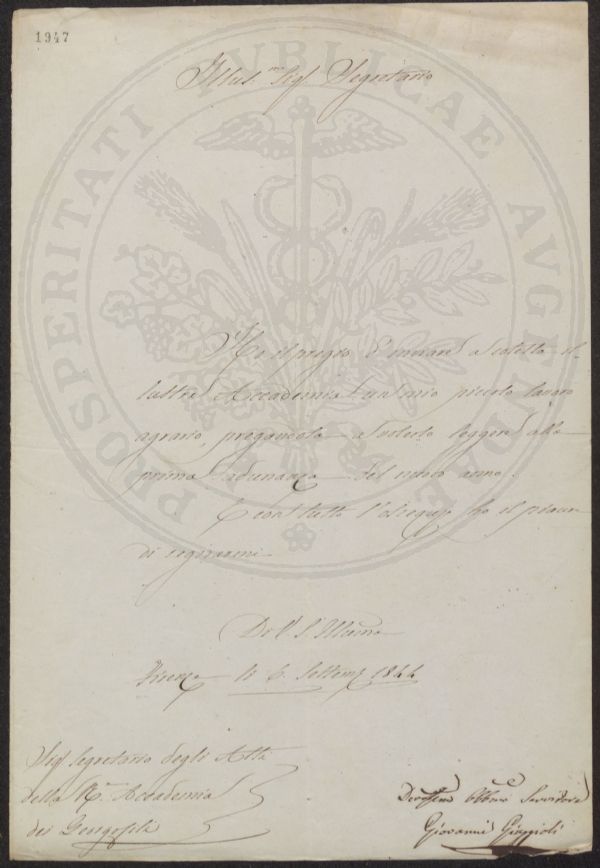 1947
PROSPERITATI PVBLICAE AVGENDAE
Illus.mo Sigr Segretario
Ho il pregio d'inviare a codesta il-
lustre Accademia un mio piccolo lavoro
agrario, pregandola a volerlo leggere alla
prima adunanza del nuovo anno.
E con tutto l'ossequio ho il piacere
di segnarmi
Di V. S. Illma
Firenze li 6. Settembe 1844
Sigr Segretario degli Atti
della R. Accademia
dei Georgofili
Devotmo Obbmo Servidore
Giovanni